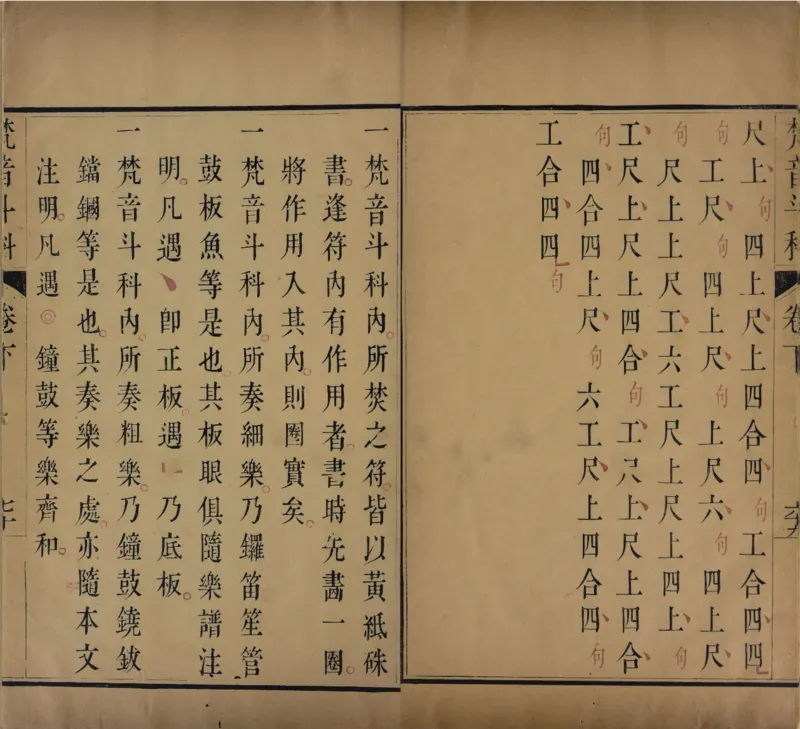 梵音斗科 卷下
尺上句四上尺上四合四句工合四四
句工尺句四上尺句上尺六句四上尺
句尺上上尺工六工尺上尺上四上句
工尺上尺上四合句工尺上尺上四合
句四合四上尺句六工尺上四合四句
工合四四句
一梵音斗科內。所焚之符。皆以黃紙硃
書。逢符內有作用者。書時先畵一圈。
將作用入其內。則圈實矣。
一梵音斗科內。所奏細樂。乃鑼笛笙管
鼓板魚等是也。其板眼俱隨樂譜注
明。凡遇丶卽正板。遇㇄乃底板。
一梵音斗科內。所奏粗樂。乃鐘鼓鐃鈸
鐺鐗等是也。其奏樂之處。亦隨本文
注明。凡遇◎鐘鼓等樂齊和。
梵音斗科 卷下